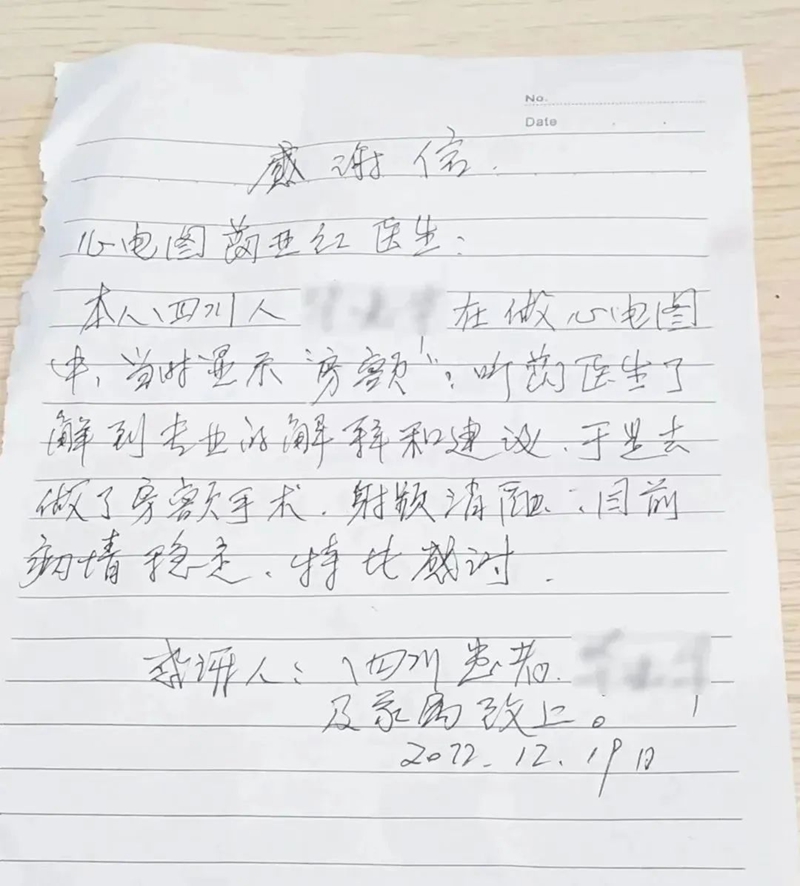 No.
Date
感谢信.
心电图蔺亚红医生:
本人四川人 在做心电图
中,当时显示“房颤”;听蔺医生了
解到专业的解释和建议、于是去
做了房颤手术.射频消融;目前
病情稳定、特此感谢.
感谢人:四川患者.
及家属致上。
2022.12.19日